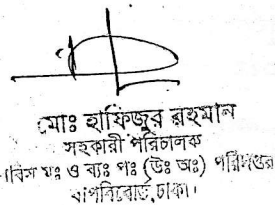 মোঃ হাফিজুর রহমান
সহকারী পরিচালক
যঃ ও ব্যঃ পঃ (উঃ অঃ) পরিদপ্তর
বাপবিবোর্ড, ঢাকা।